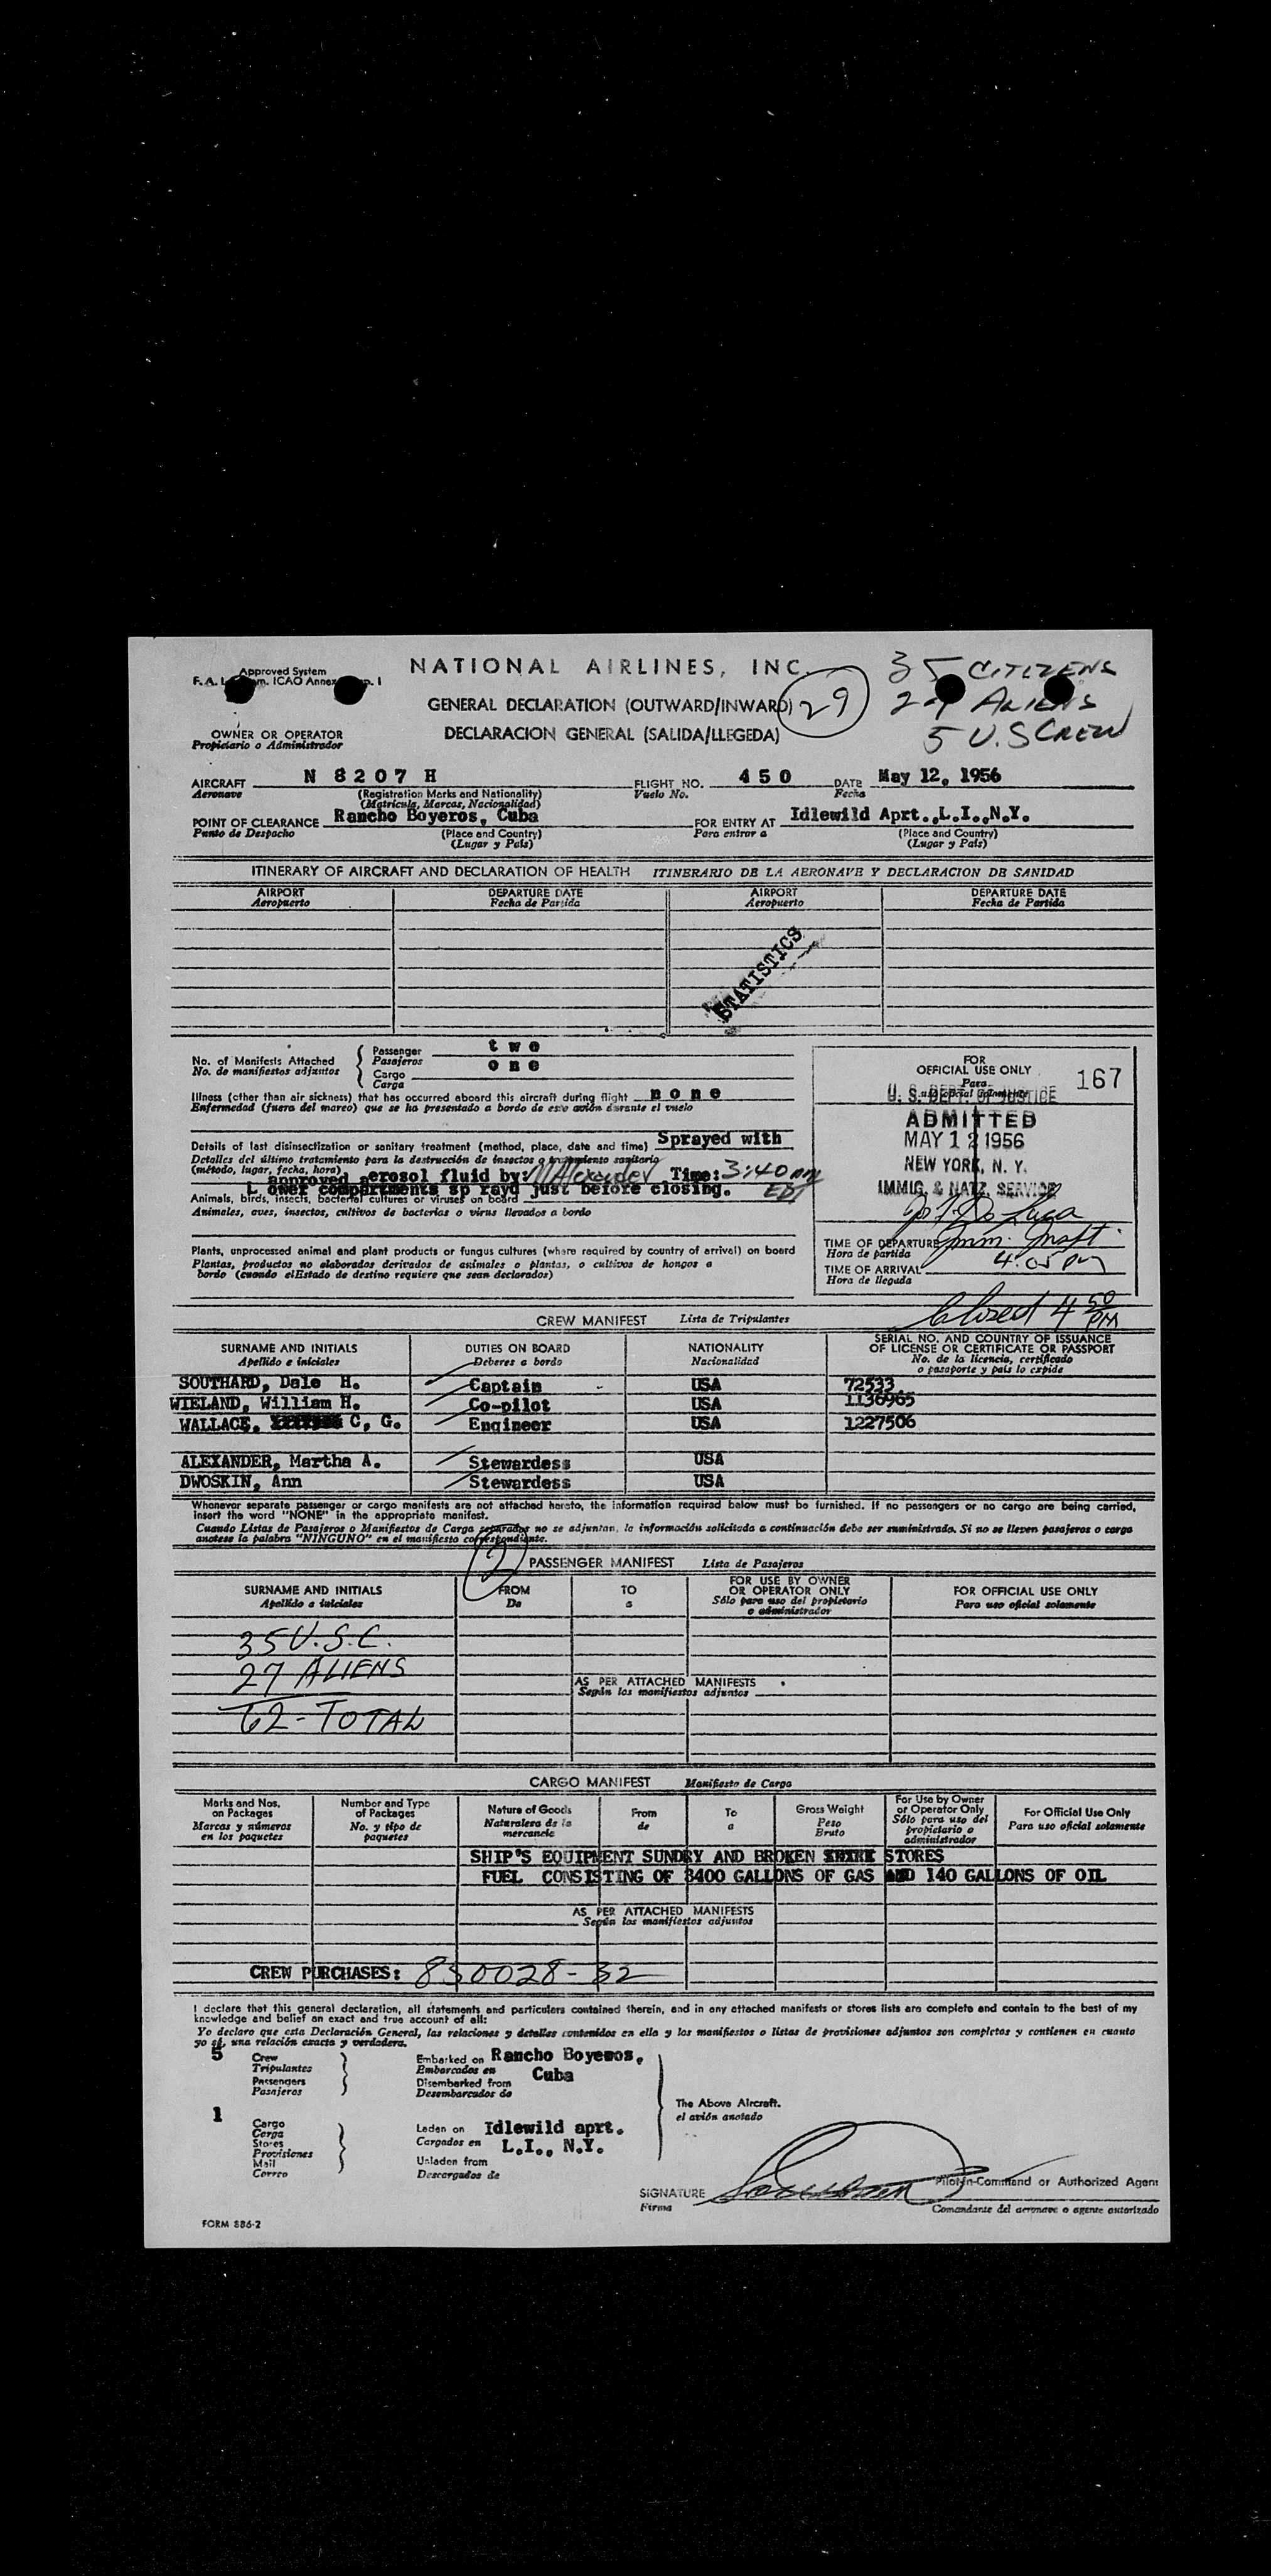 NATIONAL AIRLINES, INC.
35 CITIZENS
Approved System
F. A. ICAO Annex I
GENERAL DECLARATION (OUTWARD/INWARD)
29
ALIENS
OWNER OR OPERATOR
Propietario o Administrador
DECLARACION GENERAL (SALIDA/LLEGEDA)
5 U.S CREW
AIRCRAFT N 8207 H FLIGHT NO. 450 DATE May 12, 1956
Aeronave (Registration Marks and Nationality) Vuelo No. Fecha
(Matricula, Marcas, Nacionalidad)
POINT OF CLEARANCE Rancho Boyeros, Cuba FOR ENTRY AT Idlewild Aprt.,L.I.,N.Y.
Punto de Despacho (Place and Country) Para entrar a (Place and Country)
(Lugar y País) (Lugar y País)
ITINERARY OF AIRCRAFT AND DECLARATION OF HEALTH ITINERARIO DE LA AERONAVE Y DECLARACION DE SANIDAD
AIRPORT DEPARTURE DATE AIRPORT DEPARTURE DATE
Aeropuerto Fecha de Partida Aeropuerto Fecha de Partida
STATISTICS
No. of Manifests Attached Passenger two
No. de manifiestos adjuntos Pasajeros
Cargo one
Carga
FOR
OFFICIAL USE ONLY
Para
uso oficial solamente
167
U. S. DEPT. OF JUSTICE
ADMITTED
MAY 12 1956
NEW YORK, N. Y.
IMMIG. & NATZ. SERVICE
Illness (other than air sickness) that has occurred aboard this aircraft during flight none
Enfermedad (fuera del mareo) que se ha presentado a bordo de este avión durante el vuelo
Details of last disinsectization or sanitary treatment (method, place, date and time) Sprayed with
Detalles del último tratamiento para la destrucción de insectos o tratamiento sanitario
(método, lugar, fecha, hora)
approved aerosol fluid by: M Alexander Time: 3:40 pm
EDT
L ower compartments sp rayd just before closing.
Animals, birds, insects, bacterial cultures or viruses on board
Animales, aves, insectos, cultivos de bacterias o virus llevados a bordo
Plants, unprocessed animal and plant products or fungus cultures (where required by country of arrival) on board
Plantas, productos no elaborados derivados de animales o plantas, o cultivos de hongos a
bordo (cuando elEstado de destino requiere que sean declarados)
TIME OF DEPARTURE
Hora de partida
TIME OF ARRIVAL 4:05 pm
Hora de llegada
Closed 4 50 PM
CREW MANIFEST Lista de Tripulantes
SURNAME AND INITIALS DUTIES ON BOARD NATIONALITY SERIAL NO. AND COUNTRY OF ISSUANCE
OF LICENSE OR CERTIFICATE OR PASSPORT
Apellido e iniciales Deberes a bordo Nacionalidad No. de la licencia, certificado
o pasaporte y país lo expide
SOUTHARD, Dale H. Captain USA 72533
WIELAND, William H. Co-pilot USA 1136965
WALLACE, C, G. Engineer USA 1227506
ALEXANDER, Martha A. Stewardess USA
DWOSKIN, Ann Stewardess USA
Whenever separate passenger or cargo manifests are not attached hereto, the information required below must be furnished. If no passengers or no cargo are being carried,
insert the word "NONE" in the appropriate manifest.
Cuando Listas de Pasajeros o Manifiestos de Carga separados no se adjuntan, la información solicitada a continuación debe ser suministrada. Si no se llevan pasajeros o carga
anotese la palabra "NINGUNO" en el manifiesto correspondiente.
2
PASSENGER MANIFEST Lista de Pasajeros
SURNAME AND INITIALS FROM TO FOR USE BY OWNER
OR OPERATOR ONLY FOR OFFICIAL USE ONLY
Apellido e iniciales De a Sólo para uso del propietario
o administrador Para uso oficial solamente
35 U.S.C.
27 ALIENS
62 - TOTAL
AS PER ATTACHED MANIFESTS
Según los manifiestos adjuntos
CARGO MANIFEST Manifiesto de Carga
Marks and Nos.
on Packages
Marcas y números
en los paquetes
Number and Type
of Packages
No. y tipo de
paquetes
Nature of Goods
Naturaleza de la
mercancie
From
de
To
a
Gross Weight
Peso
Bruto
For Use by Owner
or Operator Only
Sólo para uso del
propietario o
administrador
For Official Use Only
Para uso oficial solamente
SHIP'S EQUIPMENT SUNDRY AND BROKEN STORES
FUEL CONSISTING OF 3400 GALLONS OF GAS AND 140 GALLONS OF OIL
AS PER ATTACHED MANIFESTS
Según los manifiestos adjuntos
CREW PURCHASES: 850028-32
I declare that this general declaration, all statements and particulars contained therein, and in any attached manifests or stores lists are complete and contain to the best of my
knowledge and belief an exact and true account of all:
Yo declaro que esta Declaración General, las relaciones y detalles contenidos en ella y los manifiestos o listas de provisiones adjuntos son completos y contienen en cuanto
yo sé, una relación exacta y verdadera.
5 Crew
Tripulantes
Passengers
Pasajeros
Embarked on Rancho Boyeros,
Embarcados en Cuba
Disembarked from
Desembarcados de
The Above Aircraft.
el avión anotado
1
Cargo
Carga
Stores
Provisiones
Mail
Correo
Laden on Idlewild aprt.
Cargados en L.I., N.Y.
Unladen from
Descargados de
SIGNATURE Pilot-in-Command or Authorized Agent
Firma Comandante del aeronave o agente autorizado
FORM 886-2